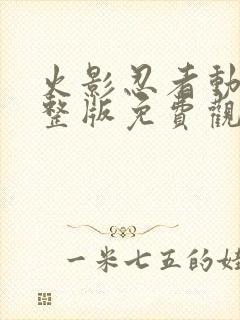 火影忍者動
整版免費觀
一米七五的娃